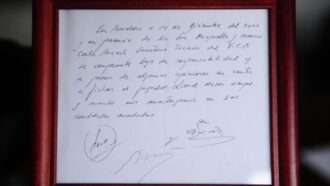 En Barcelona a 14 de Diciembre del 2000
y en presencia de los Srs Minguella y Horacio
Carles Rexach Secretario Técnico del F.C.B
se compromete bajo su responsabilidad y
a pesar de algunas opiniones en contra
a fichar al jugador Lionel Messi siempre
y cuando nos mantengamos en las
cantidades acordadas